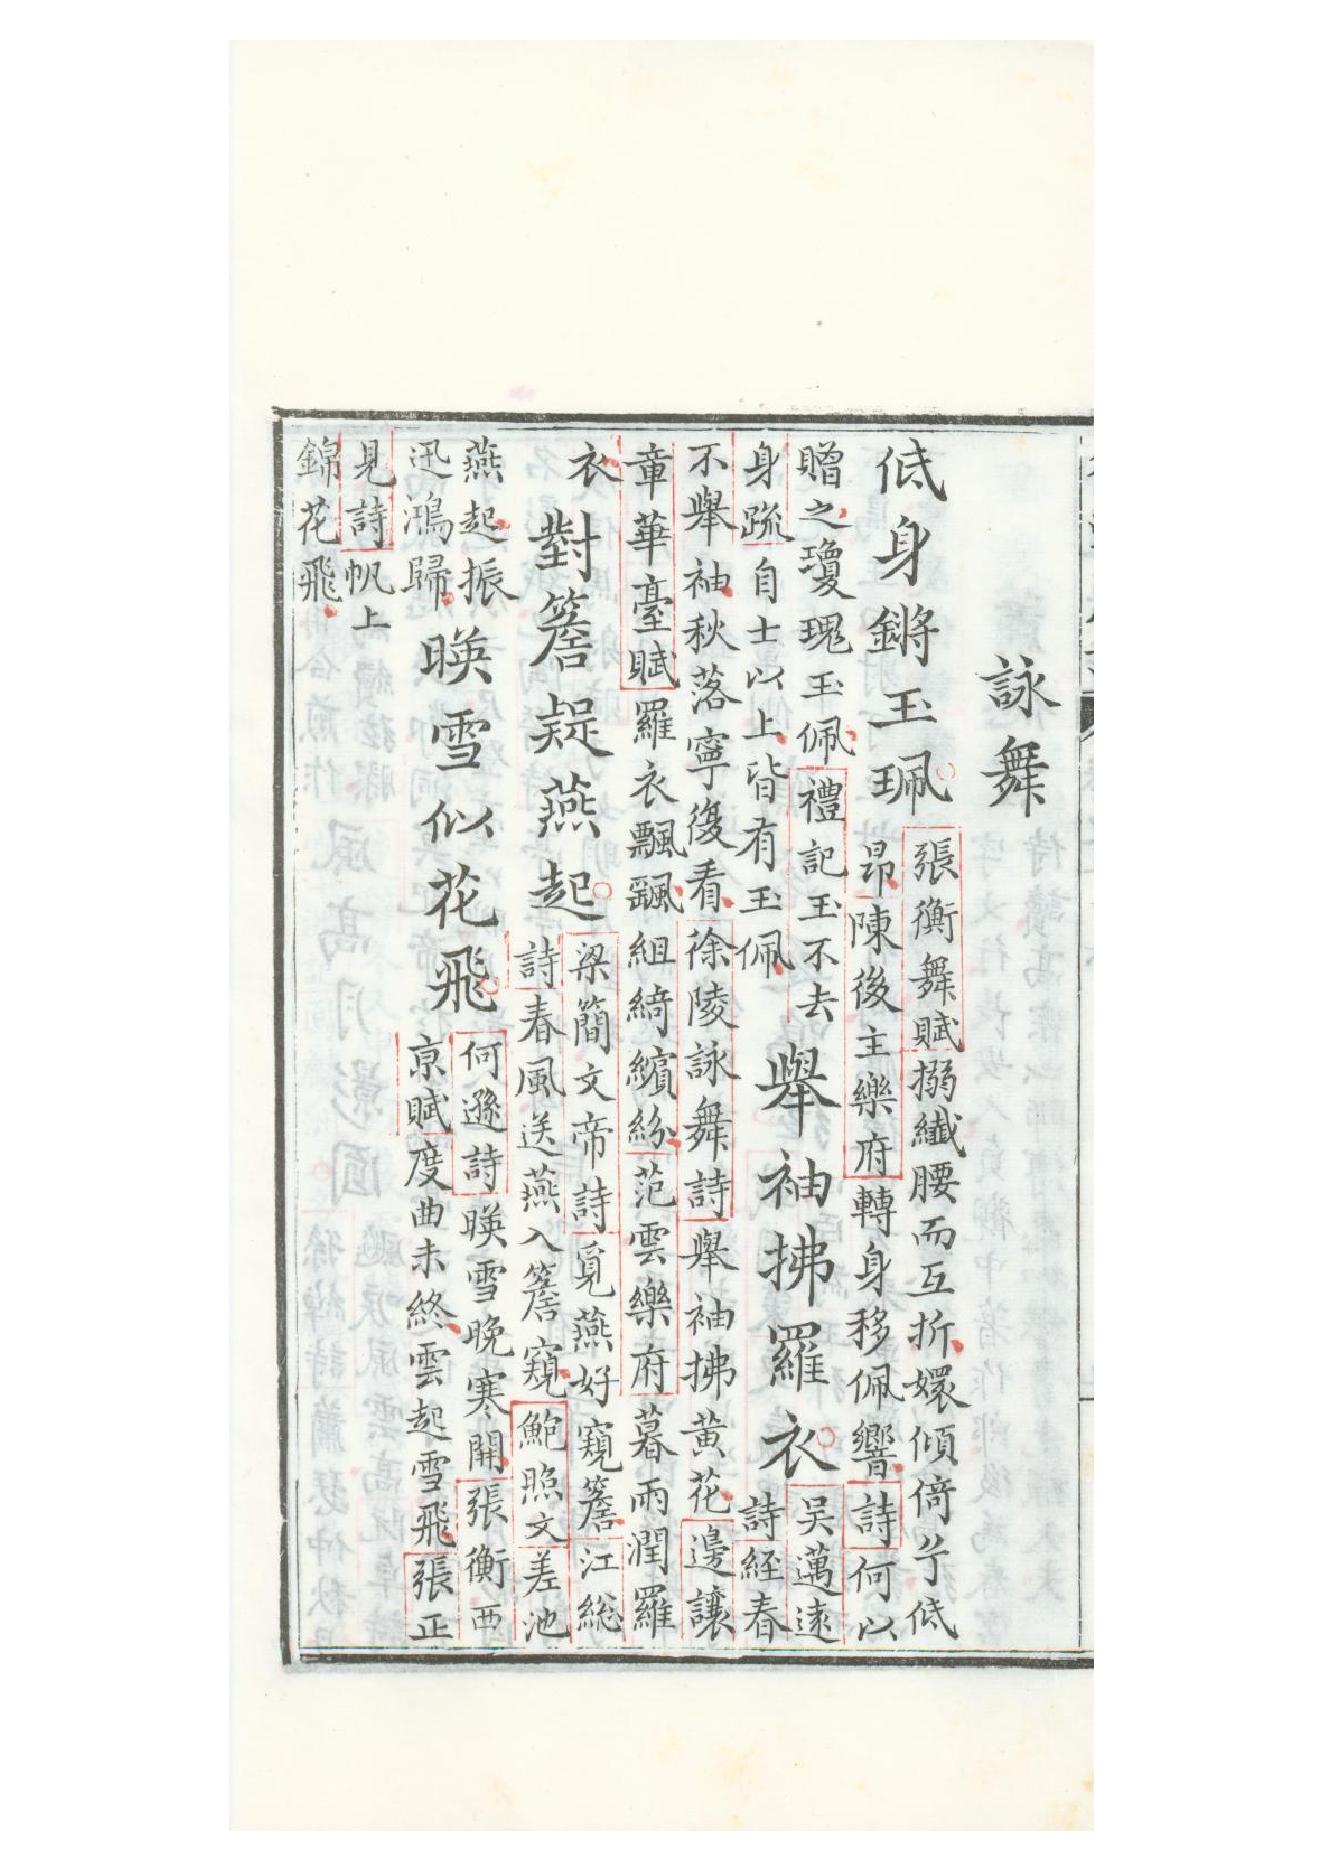 詠舞
低身鏘玉珮
張衡舞賦搦纖腰而互折嬛傾倚兮低
昂陳後主樂府轉身移佩響詩何以
贈之瓊瑰玉佩禮記玉不去
身疏自士以上皆有玉佩
舉袖拂羅衣
吳邁遠
詩經春
不舉袖秋落寧復看徐陵詠舞詩舉袖拂黃花邊讓
章華臺賦羅衣飄飖組綺繽紛范雲樂府暮雨潤羅
衣
對簷疑燕起
梁簡文帝詩覓燕好窺簷江総
詩春風送燕入簷窺鮑照文差池
燕起振
迅鴻歸
暎雪似花飛
何遜詩暎雪晚寒開張衡西
京賦度曲未終雲起雪飛張正
見詩帆上
錦花飛